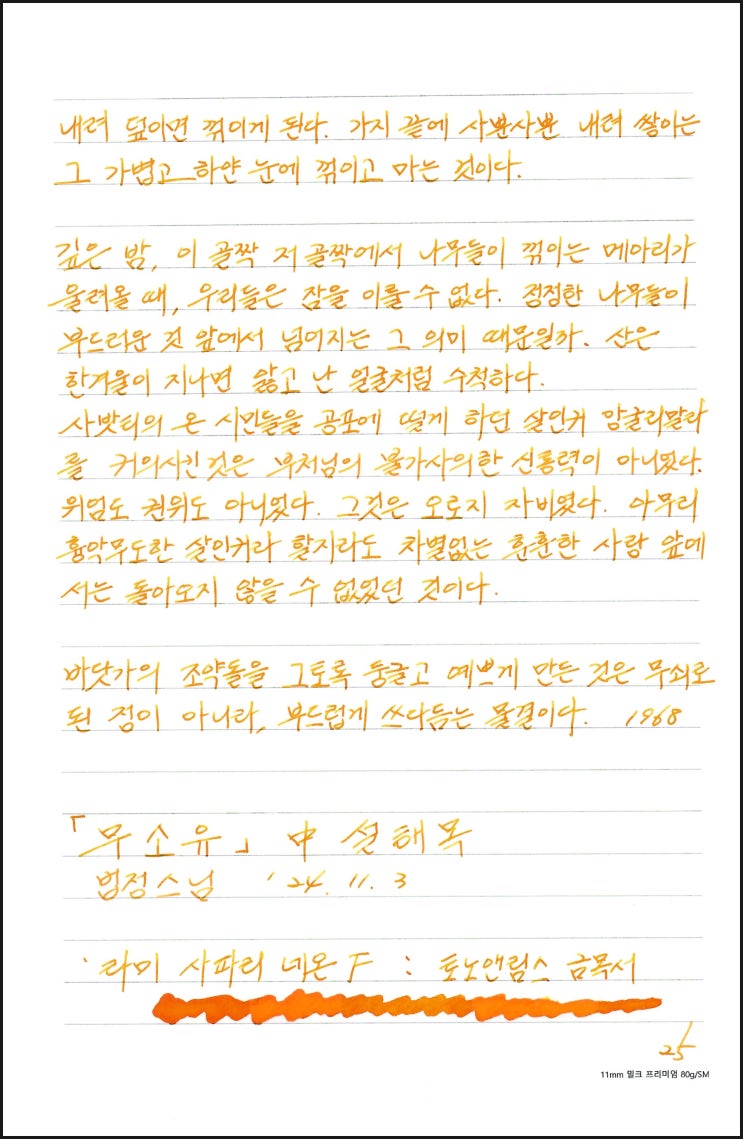 내려 덮이면 꺾이게 된다. 가지 끝에 사뿐사뿐 내려 쌓이는
그 가볍고 하얀 눈에 꺾이고 마는 것이다.
깊은 밤, 이 골짝 저 골짝에서 나무들이 꺾이는 메아리가
울려올 때, 우리들은 잠을 이룰 수 없다. 정정한 나무들이
부드러운 것 앞에서 넘어지는 그 의미 때문일까. 산은
한겨울이 지나면 앓고 난 얼굴처럼 수척하다.
사밧티의 온 시민들을 공포에 떨게 하던 살인귀 앙굴리말라
를 귀의시킨 것은 부처님의 불가사의한 신통력이 아니었다.
위엄도 권위도 아니었다. 그것은 오로지 자비였다. 아무리
흉악무도한 살인귀라 할지라도 차별없는 훈훈한 사랑 앞에
서는 돌아오지 않을 수 없었던 것이다.
바닷가의 조약돌을 그토록 둥글고 예쁘게 만든 것은 무쇠로
된 정이 아니라, 부드럽게 쓰다듬는 물결이다. 1968
「무소유」 中 설해목
법정스님 '24. 11. 3
· 라미 사파리 네온 F : 토노앤림스 금목서
25
11mm 밀크 프리미엄 80g/SM